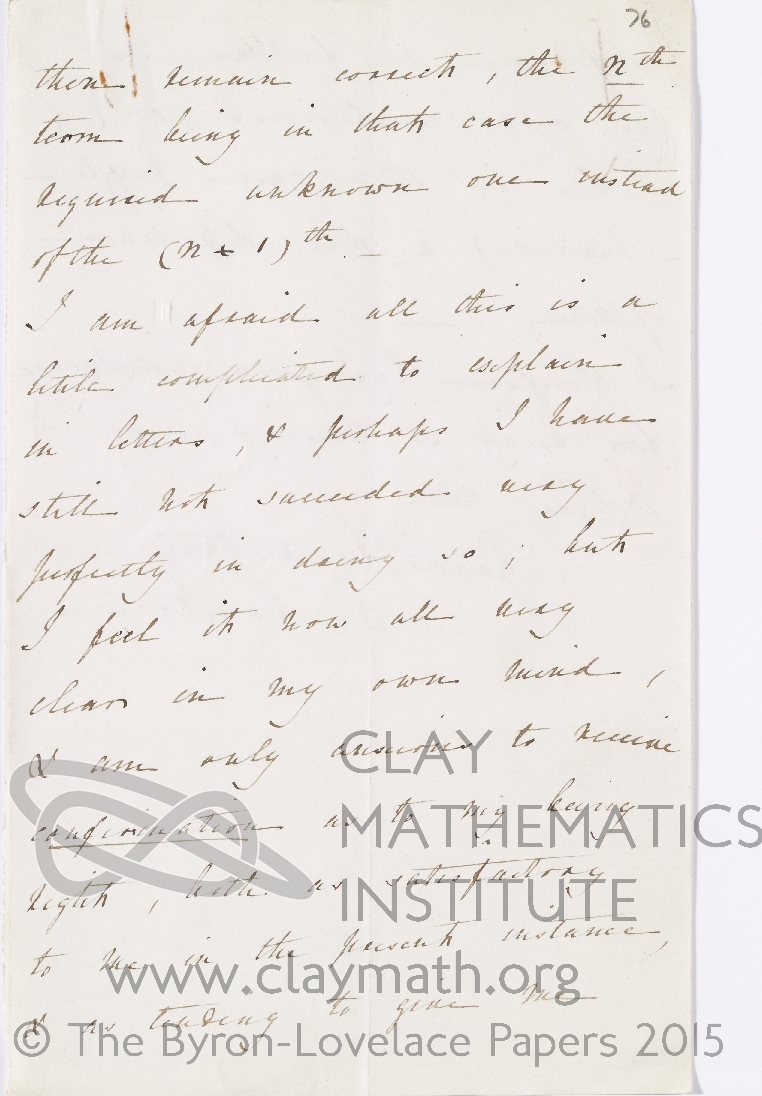 76
then remain correct, the nth
term being in that case the
required unknown one instead
of the (n + 1)th.—
I am afraid all this is a
little complicated to explain
in letters, & perhaps I have
still not succeeded very
perfectly in doing so; but
I feel it now all very
clear in my own mind,
& am only anxious to receive
confirmation as to my being
right, both as satisfactory
to me in the present instance,
& as tending to give me
CLAY
MATHEMATICS
INSTITUTE
www.claymath.org
© The Byron-Lovelace Papers 2015